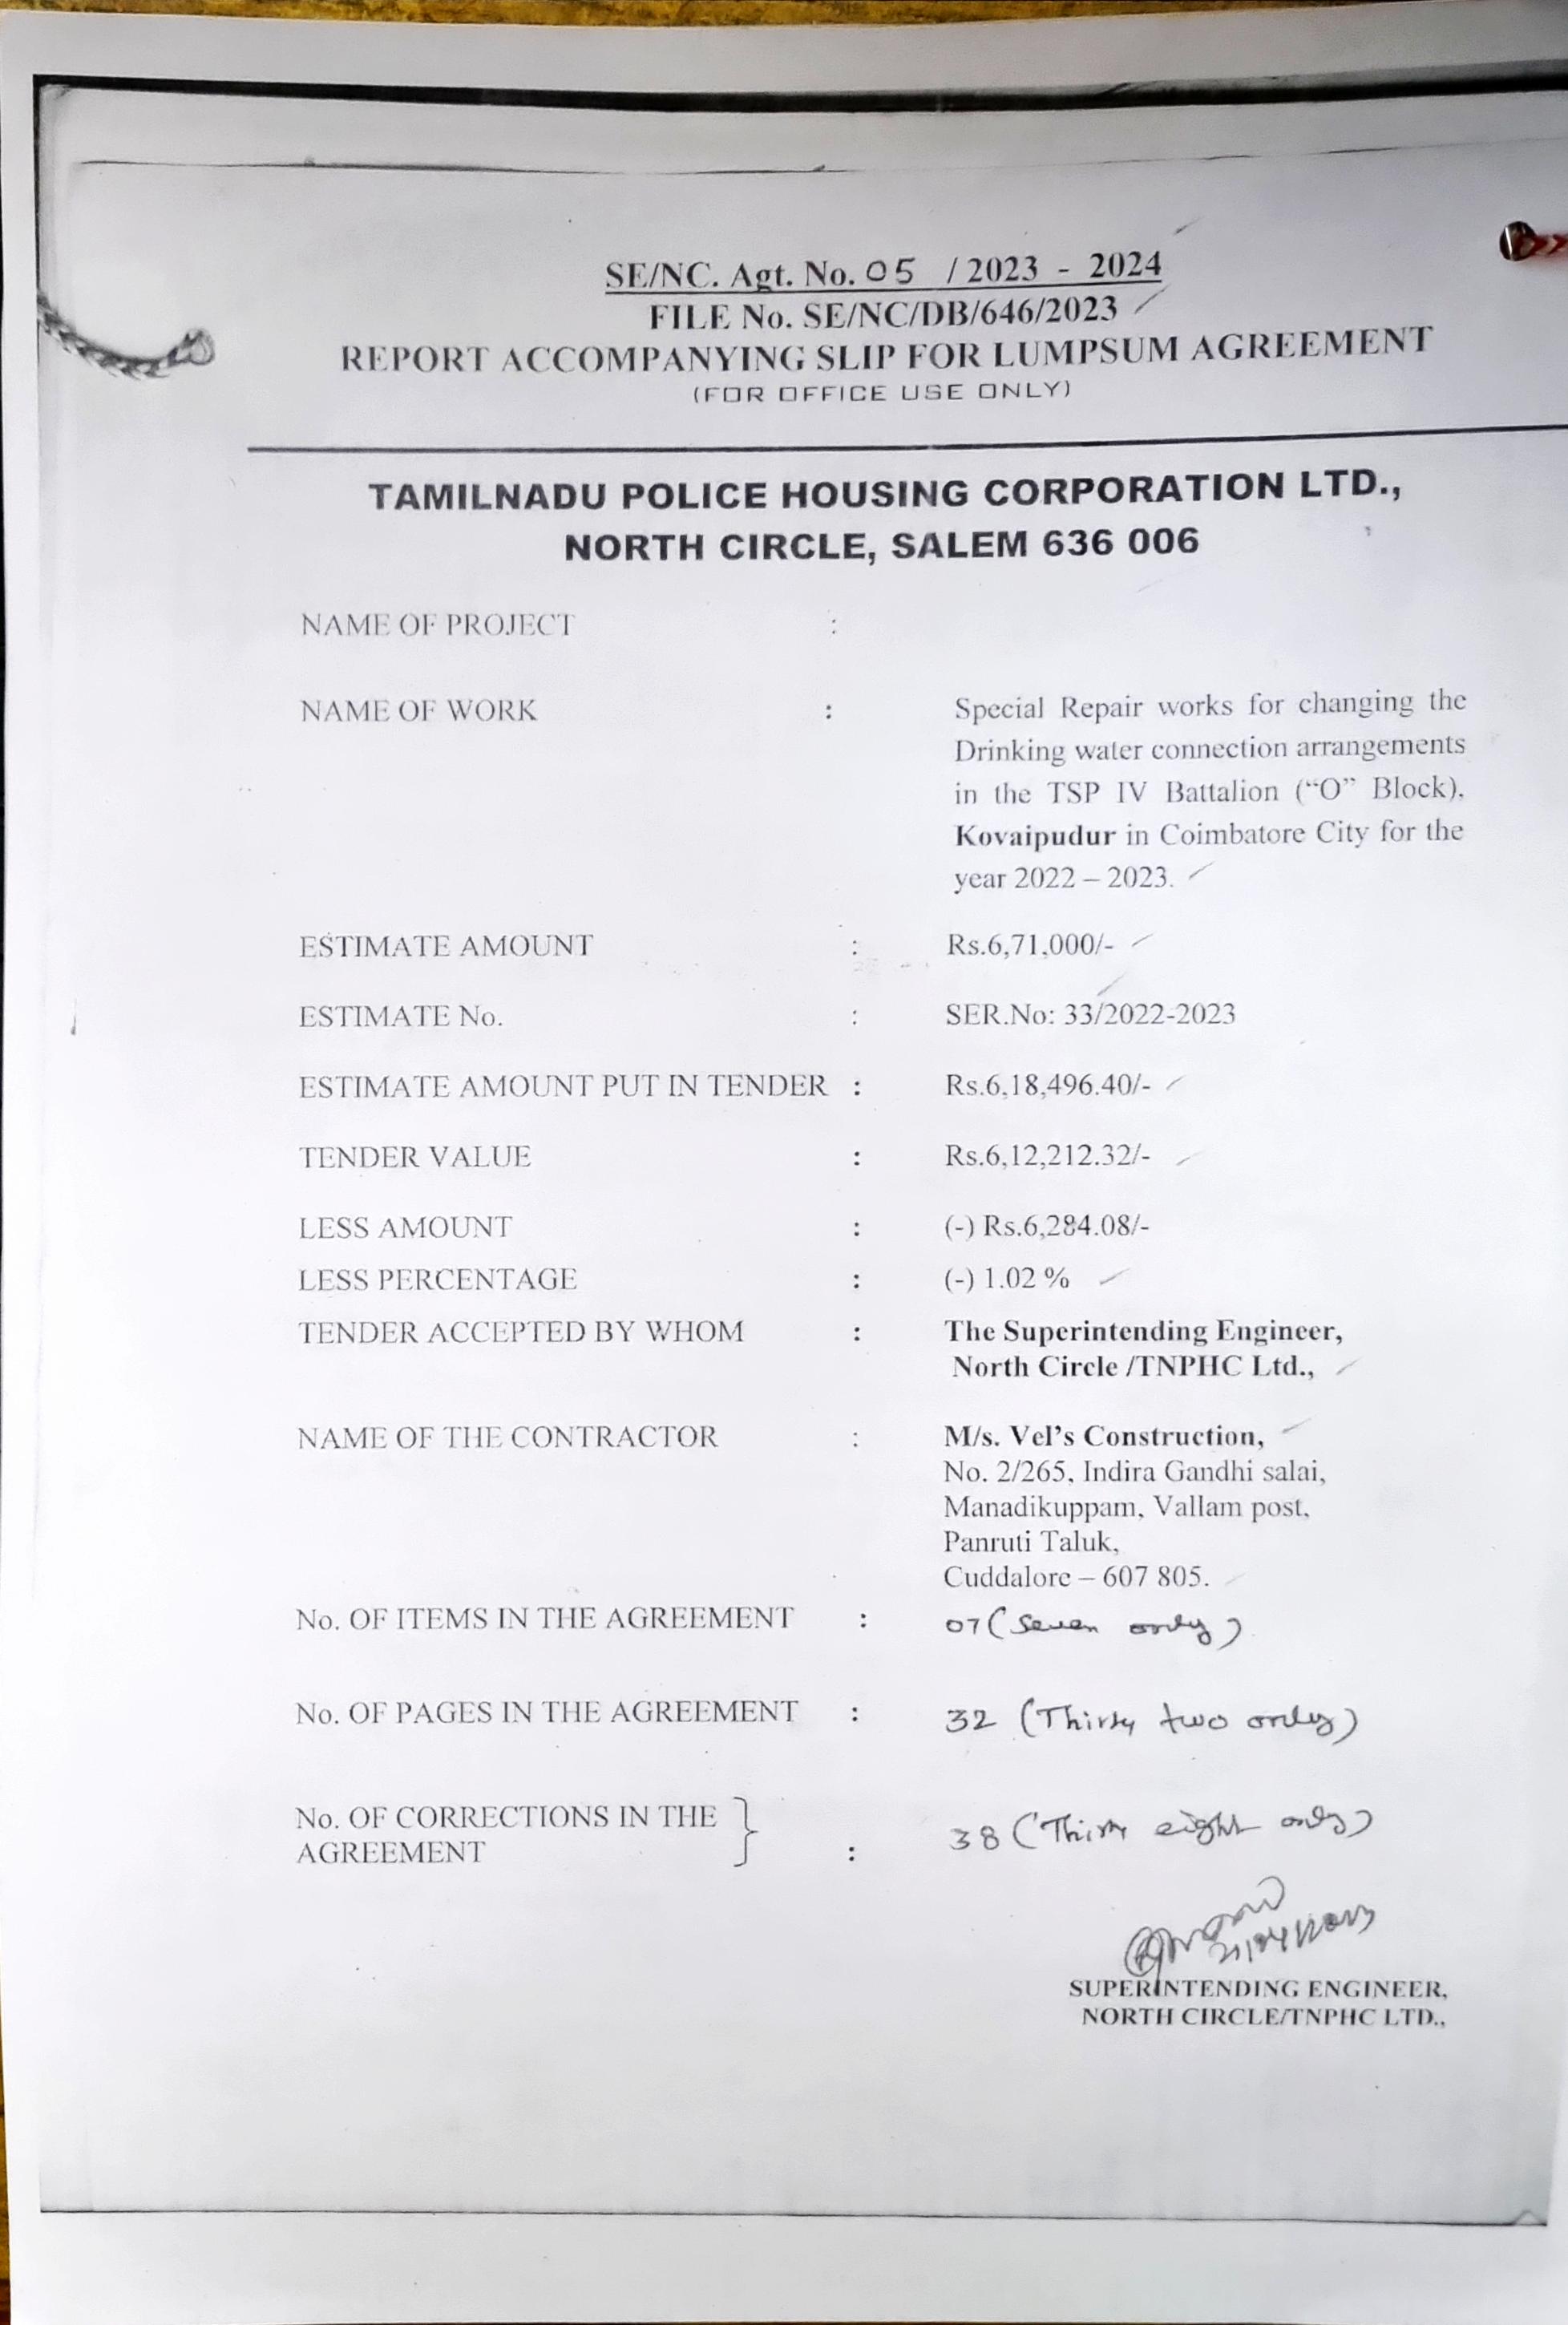 SE/NC. Agt. No. 05 / 2023 - 2024
FILE No. SE/NC/DB/646/2023
REPORT ACCOMPANYING SLIP FOR LUMPSUM AGREEMENT
(FOR OFFICE USE ONLY)
TAMILNADU POLICE HOUSING CORPORATION LTD.,
NORTH CIRCLE, SALEM 636 006
NAME OF PROJECT :
NAME OF WORK : Special Repair works for changing the
Drinking water connection arrangements
in the TSP IV Battalion (“O” Block),
Kovaipudur in Coimbatore City for the
year 2022 – 2023.
ESTIMATE AMOUNT : Rs.6,71,000/-
ESTIMATE No. : SER.No: 33/2022-2023
ESTIMATE AMOUNT PUT IN TENDER : Rs.6,18,496.40/-
TENDER VALUE : Rs.6,12,212.32/-
LESS AMOUNT : (-) Rs.6,284.08/-
LESS PERCENTAGE : (-) 1.02 %
TENDER ACCEPTED BY WHOM : The Superintending Engineer,
North Circle /TNPHC Ltd.,
NAME OF THE CONTRACTOR : M/s. Vel’s Construction,
No. 2/265, Indira Gandhi salai,
Manadikuppam, Vallam post,
Panruti Taluk,
Cuddalore – 607 805.
No. OF ITEMS IN THE AGREEMENT : 07 (Seven only)
No. OF PAGES IN THE AGREEMENT : 32 (Thirty two only)
No. OF CORRECTIONS IN THE
AGREEMENT : 38 (Thirty eight only)
SUPERINTENDING ENGINEER,
NORTH CIRCLE/TNPHC LTD.,